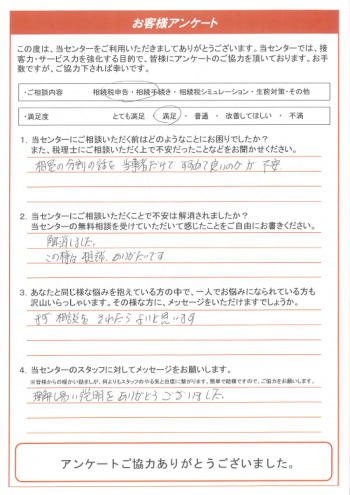 お客様アンケート
この度は、当センターをご利用いただきましてありがとうございます。当センターでは、接
客力・サービス力を強化する目的で、皆様にアンケートのご協力を頂いております。お手
数ですが、ご協力下されば幸いです。
・ご相談内容 相続税申告・相続手続き・相続税シミュレーション・生前対策・その他
・満足度 とても満足 ・ 満足 ・ 普通 ・ 改善してほしい ・ 不満
1. 当センターにご相談いただく前はどのようなことにお困りでしたか？
また、税理士にご相談いただく上で不安だったことなどをお聞かせください。
相続の分割の話を当事者だけで すすめて良いのかが 不安.
2. 当センターにご相談いただくことで不安は解消されましたか？
当センターの無料相談を受けていただいて感じたことをご自由にお書きください。
解消しました。
この様な 相談、ありがたいです
3. あなたと同じ様な悩みを抱えている方の中で、一人でお悩みになられている方も
沢山いらっしゃいます。その様な方に、メッセージをいただけますでしょうか。
まず 相談を されたらよいと思います
4. 当センターのスタッフに対してメッセージをお願いします。
※皆様からの暖かい励ましが、何よりもスタッフのやる気と自信に繋がります。簡単で結構ですので、ご協力をお願いします。
理解し易い説明をありがとうございました。
アンケートご協力ありがとうございました。